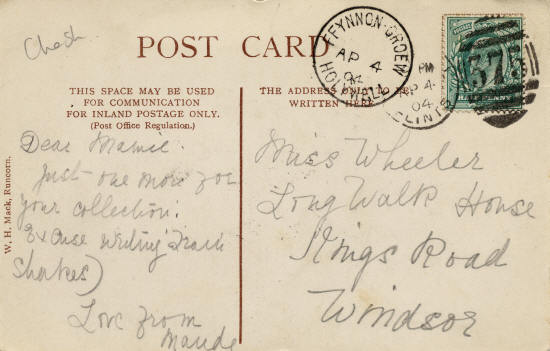 Chest
POST CARD
THIS SPACE MAY BE USED
FOR COMMUNICATION
FOR INLAND POSTAGE ONLY.
(Post Office Regulation.)
THE ADDRESS ONLY TO BE
WRITTEN HERE
FFYNNON-GROEW
AP 4
04
HOLYWELL
PM
AP 4
04
FLINT
37
W. H. Mack, Runcorn.
Dear Mamie.
Just one more for
your collection.
Excuse writing (train
shakes)
Love from
Maude
Miss Wheeler
Long Walk House
Kings Road
Windsor